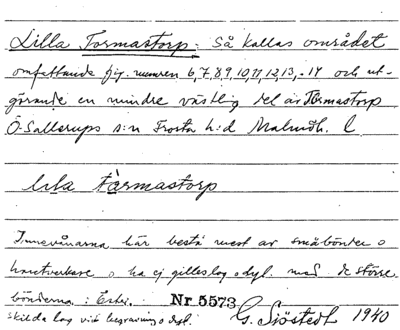 Lilla Tormastorp: Så kallas området
omfattande fig. numren 6,7,8,9,10,11,12,13,-14 och ut-
görande en mindre västlig del av Tormastorp
Ö. Sallerups s:n Frosta h:d Malmöh. l
lila tårmastorp
Innevånarna här bestå mest av småbönder o
hantverkare o ha ej gilleslag o dyl. med de större
bönderna i Ester.
Nr 5573
skilda lag vid begravning o dyl.
G. Sjöstedt 1940